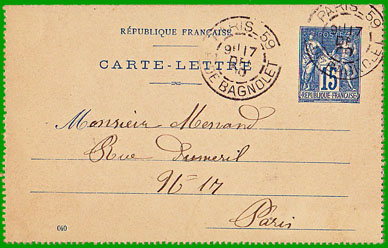 RÉPUBLIQUE FRANÇAISE
CARTE-LETTRE
PARIS-59
9E/17
DE
RUE BAGNOLET
PARIS-59
POSTES
15
REPUBLIQUE FRANÇAISE
Monsieur Menand
Rue Dumeril
No 17
Paris
640